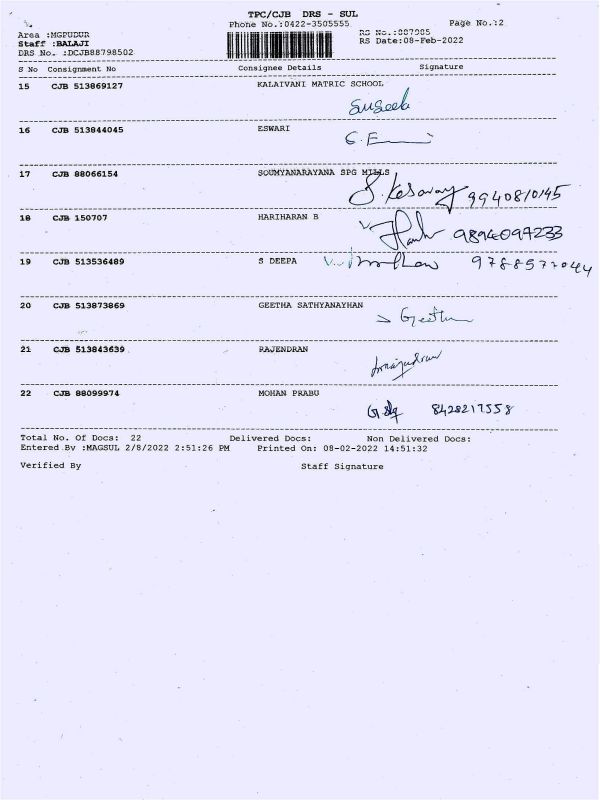 TPC/CJB DRS - SUL
Phone No.:0422-3505555 Page No.:2
Area :MGPUDUR RS No.:887985
Staff :BALAJI RS Date:08-Feb-2022
DRS No. :DCJB88798502
S No Consignment No Consignee Details Signature
15 CJB 513869127 KALAIVANI MATRIC SCHOOL
Suseela
16 CJB 513844045 ESWARI
17 CJB 88066154 SOUMYANARAYANA SPG MILLS
S. Kesavan 9940810145
18 CJB 150707 HARIHARAN B
9894097233
19 CJB 513536489 S DEEPA 9788577044
20 CJB 513873869 GEETHA SATHYANAYHAN
Geetha
21 CJB 513843639 RAJENDRAN
22 CJB 88099974 MOHAN PRABU
8428217558
Total No. Of Docs: 22 Delivered Docs: Non Delivered Docs:
Entered By :MAGSUL 2/8/2022 2:51:26 PM Printed On: 08-02-2022 14:51:32
Verified By Staff Signature